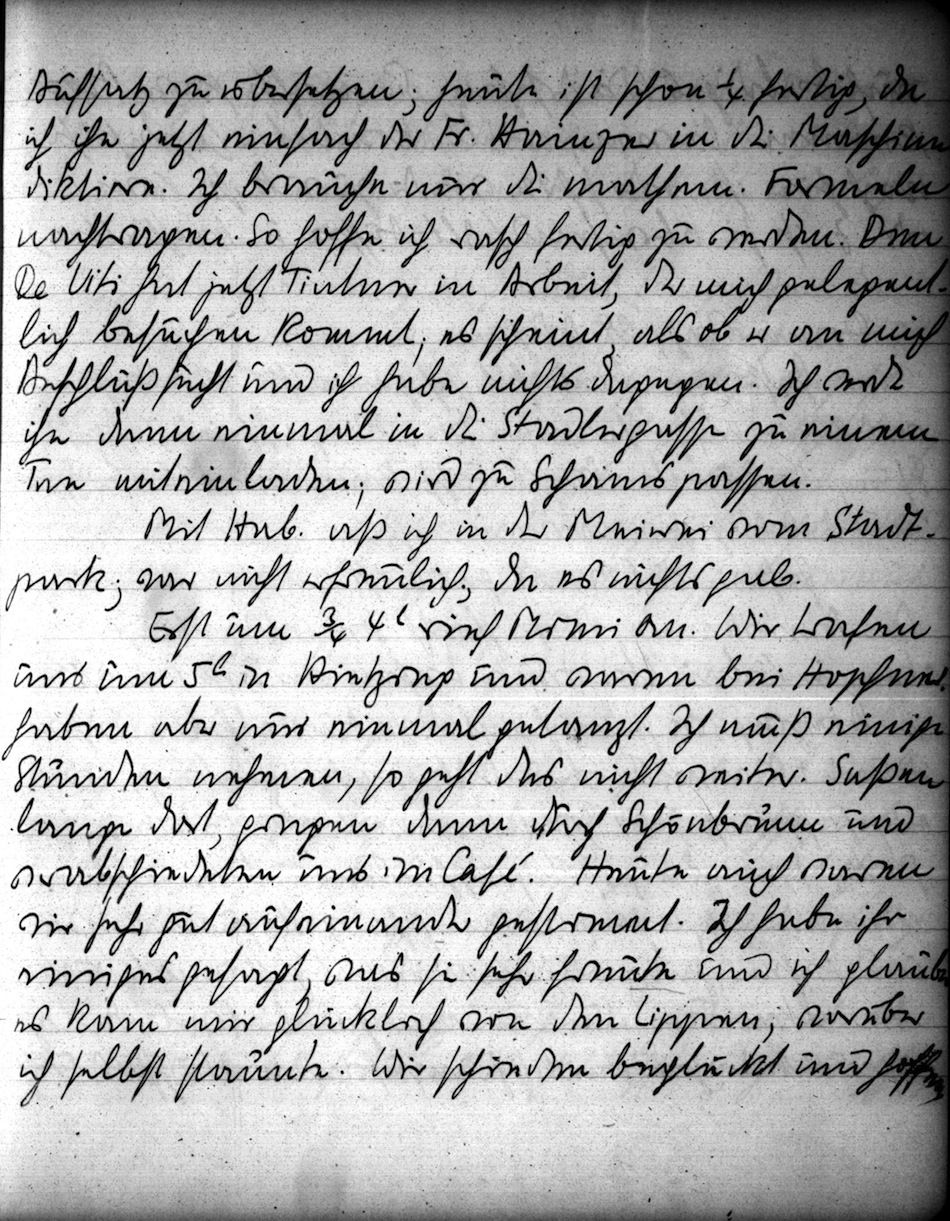 Aufsatz zu übersetzen; heute ist schon ¼ fertig, da
ich ihn jetzt einfach der Fr. Hainzer in die Maschine
diktiere. Ich brauche nur die mathem. Formeln
nachtragen. So hoffe ich rasch fertig zu werden. Den
De Viti hat jetzt Tintner in Arbeit, der mich gelegent-
lich besuchen kommt; es scheint, als ob er an mich
Anschluß sucht und ich habe nichts dagegen. Ich werde
ihn dann einmal in die Stadlergasse zu einem
Tee miteinladen; wird zu Schams passen.
Mit Hab. aß ich in der Meierei vom Stadt-
park; war nicht erfreulich, da es nichts gab.
Erst um ¾ 4h rief Mimi an. Wir trafen
uns um 5h in Hietzing und waren bei Hopfner
haben aber nur einmal getanzt. Ich muß einige
Stunden nehmen, so geht das nicht weiter. Saßen
lange dort, gingen dann durch Schönbrunn und
verabschiedeten uns im Café. Heute auch waren
wir sehr gut aufeinander gestimmt. Ich habe ihr
einiges gesagt, was sie sehr freute und ich glaube
es kam mir glücklich von den Lippen; worüber
ich selbst staunte. Wir schieden beglückt und hoffen